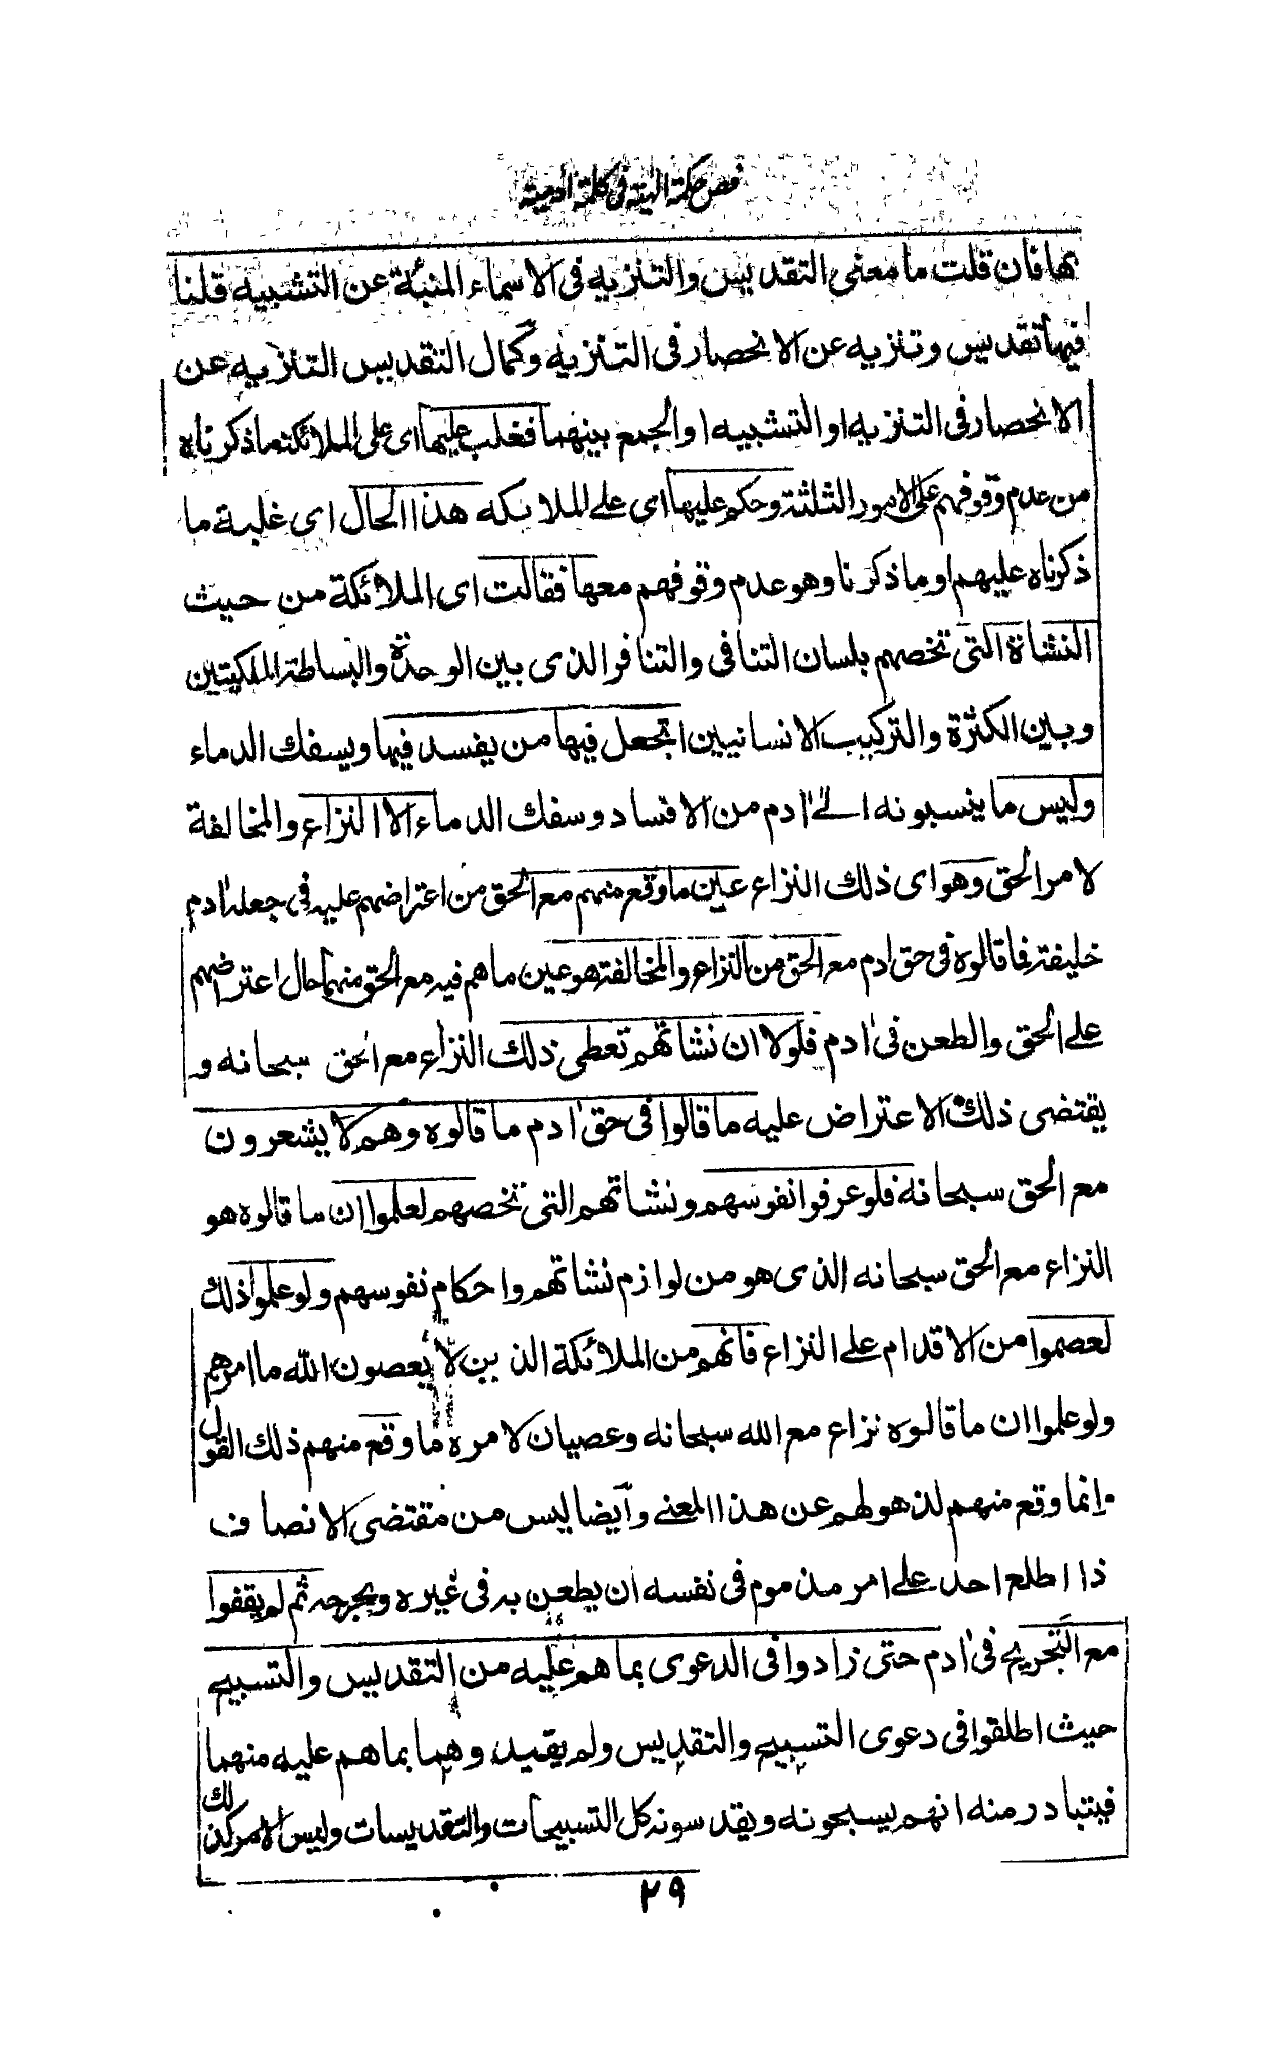 فص حكمة الهية فى كلمة آدمية
بها فان قلت ما معنى التقديس والتنزيه فى الاسماء المنبئة عن التشبيه قلنا
فيها تقديس وتنزيه عن الانحصار فى التنزيه وكمال التقديس التنزيه عن
الانحصار فى التنزيه او التشبيه او الجمع بينهما فغلب عليها اى على الملائكة ما ذكرناه
من عدم وقوفهم على الامور الثلثة وحكم عليها اى على الملائكه هذا الحال اى غلبة ما
ذكرناه عليهم او ما ذكرنا وهو عدم وقوفهم معها فقالت اى الملائكة من حيث
النشاة التى تخصهم بلسان التنافى والتنافر الذى بين الوحدة والبساطة الملكيتين
وبين الكثرة والتركيب الانسانيين اتجعل فيها من يفسد فيها ويسفك الدماء
وليس ما ينسبونه الى ادم من الافساد وسفك الدماء الا النزاع والمخالفة
لامر الحق وهو اى ذلك النزاع عين ما وقع منهم مع الحق من اعتراضهم عليه فى جعله ادم
خليفة فما قالوه فى حق ادم مع الحق من النزاع والمخالفة هو عين ما هم فيه مع الحق منهما حال اعتراضهم
على الحق والطعن فى ادم فلولا ان نشاتهم تعطى ذلك النزاع مع الحق سبحانه و
يقتضى ذلك الاعتراض عليه ما قالوا فى حق ادم ما قالوه وهم لا يشعرون
مع الحق سبحانه فلو عرفوا نفوسهم ونشاتهم التى تخصهم لعلموا ان ما قالوه هو
النزاع مع الحق سبحانه الذى هو من لوازم نشاتهم واحكام نفوسهم ولو علموا ذلك
لعصموا من الاقدام على النزاع فانهم من الملائكة الذين لا يعصون الله ما امرهم
ولو علموا ان ما قالوه نزاع مع الله سبحانه وعصيان لامره ما وقع منهم ذلك القول
وانما وقع منهم لذهولهم عن هذا المعنى وايضا ليس من مقتضى الانصاف
ذا اطلع احد على امر مذموم فى نفسه ان يطعن به فى غيره ويجرحه ثم لم يقفوا
مع التجريح فى ادم حتى زادوا فى الدعوى بما هم عليه من التقديس والتسبيح
حيث اطلقوا فى دعوى التسبيح والتقديس ولم يقيدوهما بما هم عليه منهما
فيتبادر منه انهم يسبحونه ويقدسونه كل التسبيحات والتقديسات وليس الامر كذلك
٢٩